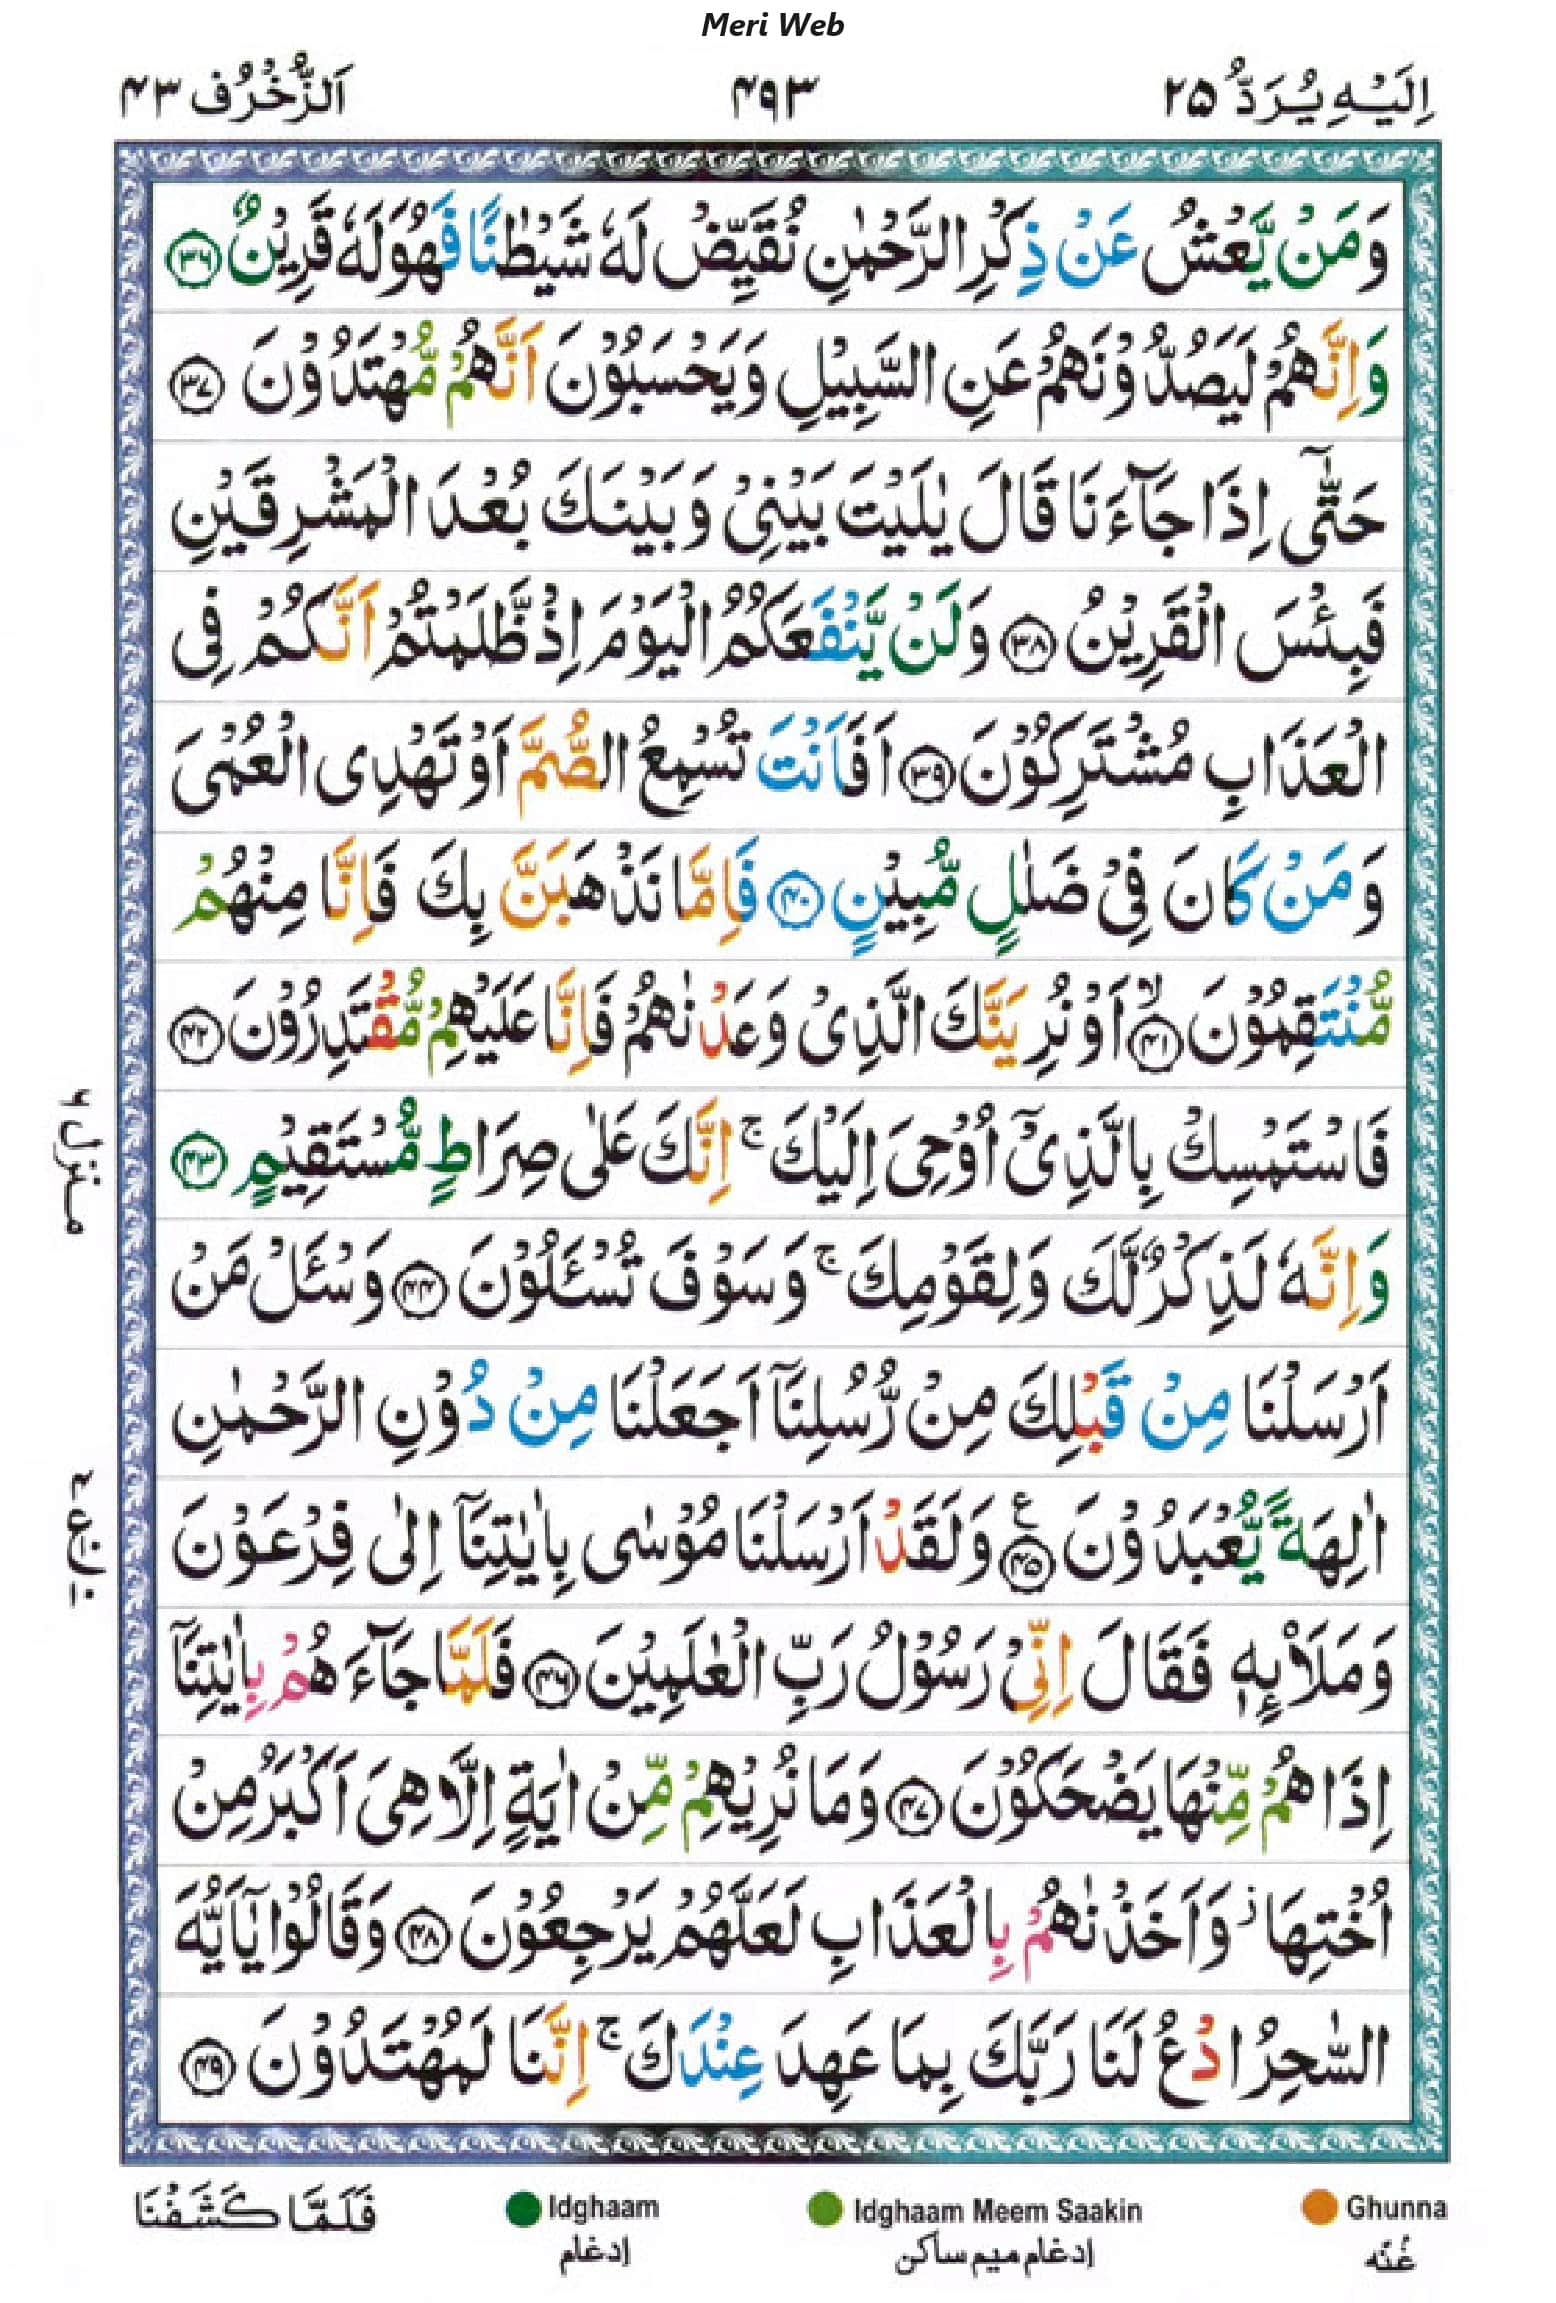 Meri Web
اِلَیْهِ یُرَدُّ ۲۵
۴۹۳
اَلزُّخْرُف ۴۳
وَمَنْ یَّعْشُ عَنْ ذِكْرِ الرَّحْمٰنِ نُقَیِّضْ لَهٗ شَیْطٰنًا فَهُوَ لَهٗ قَرِیْنٌ ۝۳۶
وَاِنَّهُمْ لَیَصُدُّوْنَهُمْ عَنِ السَّبِیْلِ وَیَحْسَبُوْنَ اَنَّهُمْ مُّهْتَدُوْنَ ۝۳۷
حَتّٰۤی اِذَا جَآءَنَا قَالَ یٰلَیْتَ بَیْنِیْ وَبَیْنَكَ بُعْدَ الْمَشْرِقَیْنِ
فَبِئْسَ الْقَرِیْنُ ۝۳۸ وَلَنْ یَّنْفَعَكُمُ الْیَوْمَ اِذْ ظَّلَمْتُمْ اَنَّكُمْ فِی
الْعَذَابِ مُشْتَرِكُوْنَ ۝۳۹ اَفَاَنْتَ تُسْمِعُ الصُّمَّ اَوْ تَهْدِی الْعُمْیَ
وَمَنْ كَانَ فِیْ ضَلٰلٍ مُّبِیْنٍ ۝۴۰ فَاِمَّا نَذْهَبَنَّ بِكَ فَاِنَّا مِنْهُمْ
مُّنْتَقِمُوْنَ ۝۴۱ۙ اَوْ نُرِیَنَّكَ الَّذِیْ وَعَدْنٰهُمْ فَاِنَّا عَلَیْهِمْ مُّقْتَدِرُوْنَ ۝۴۲
فَاسْتَمْسِكْ بِالَّذِیْۤ اُوْحِیَ اِلَیْكَ ۚ اِنَّكَ عَلٰی صِرَاطٍ مُّسْتَقِیْمٍ ۝۴۳
وَاِنَّهٗ لَذِكْرٌ لَّكَ وَلِقَوْمِكَ ۚ وَسَوْفَ تُسْـَٔلُوْنَ ۝۴۴ وَسْـَٔلْ مَنْ
اَرْسَلْنَا مِنْ قَبْلِكَ مِنْ رُّسُلِنَاۤ اَجَعَلْنَا مِنْ دُوْنِ الرَّحْمٰنِ
اٰلِهَةً یُّعْبَدُوْنَ ۝۴۵ ع وَلَقَدْ اَرْسَلْنَا مُوْسٰی بِاٰیٰتِنَاۤ اِلٰی فِرْعَوْنَ
وَمَلَا۟ىِٕهٖ فَقَالَ اِنِّیْ رَسُوْلُ رَبِّ الْعٰلَمِیْنَ ۝۴۶ فَلَمَّا جَآءَهُمْ بِاٰیٰتِنَاۤ
اِذَا هُمْ مِّنْهَا یَضْحَكُوْنَ ۝۴۷ وَمَا نُرِیْهِمْ مِّنْ اٰیَةٍ اِلَّا هِیَ اَكْبَرُ مِنْ
اُخْتِهَا ۫ وَاَخَذْنٰهُمْ بِالْعَذَابِ لَعَلَّهُمْ یَرْجِعُوْنَ ۝۴۸ وَقَالُوْا یٰۤاَیُّهَ
السّٰحِرُ ادْعُ لَنَا رَبَّكَ بِمَا عَهِدَ عِنْدَكَ ۚ اِنَّنَا لَمُهْتَدُوْنَ ۝۴۹
منزل ۶
فَلَمَّا كَشَفْنَا
Idghaam
إدغام
Idghaam Meem Saakin
إدغام میم ساکن
Ghunna
غُنّه